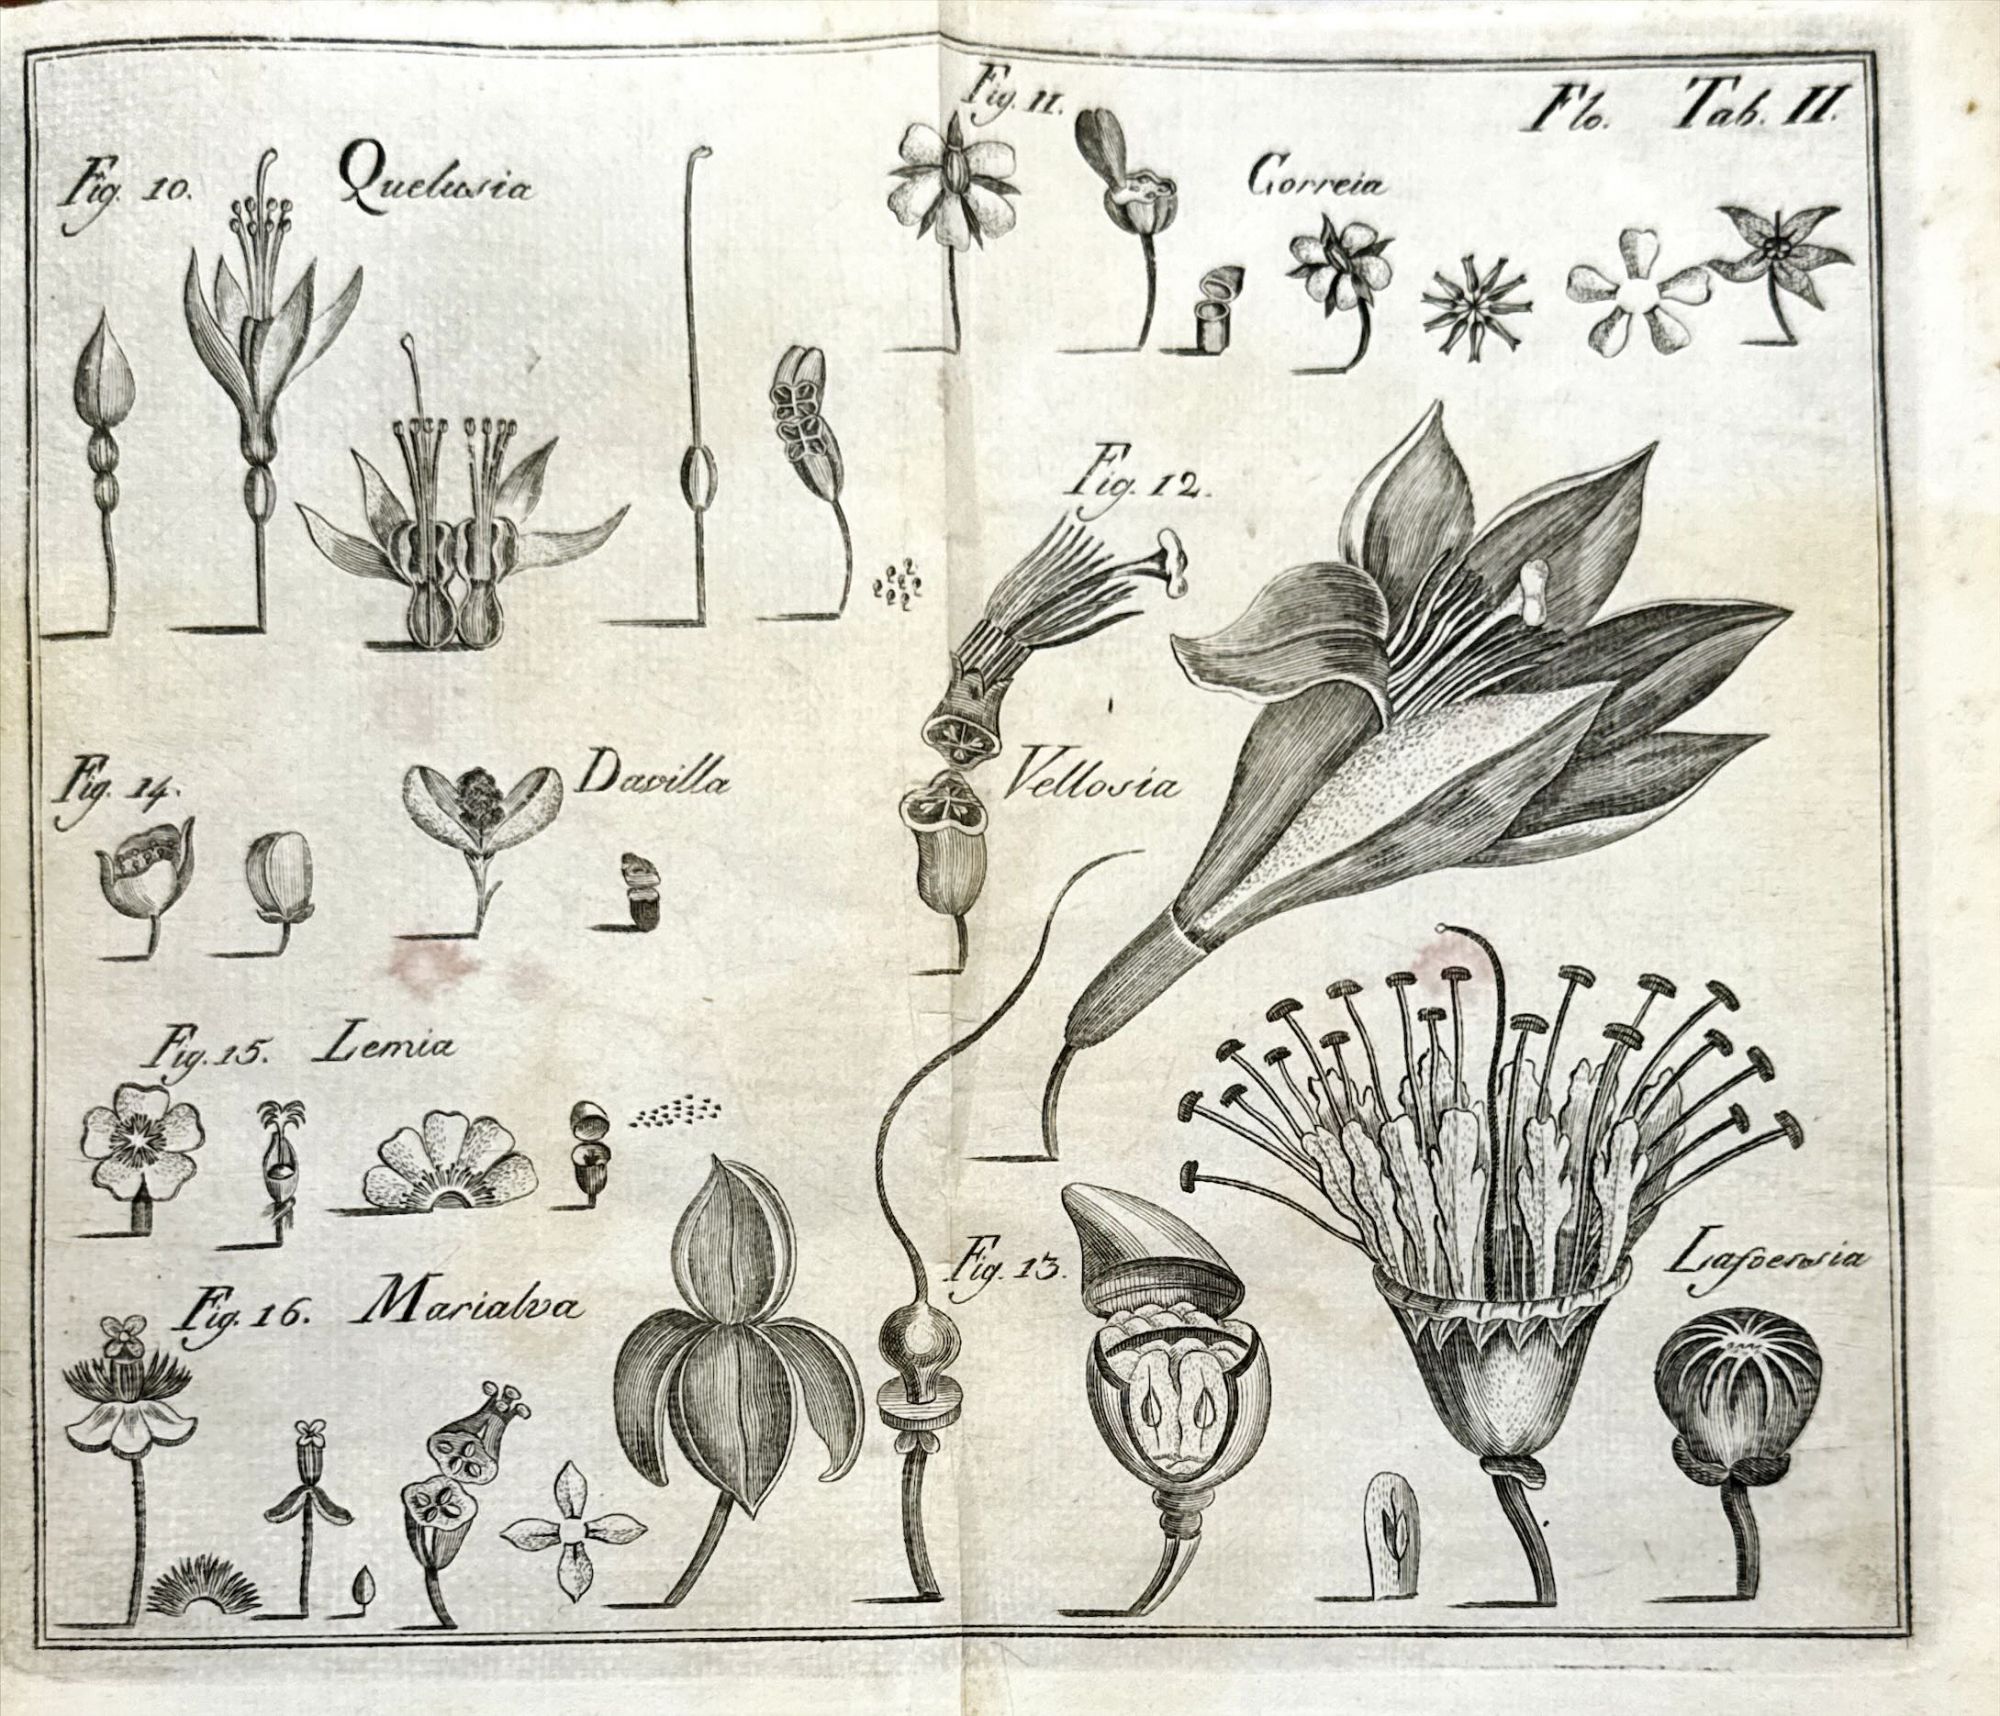 Flo. Tab. II.
Fig. 10. Quelusia
Fig. 11. Correia
Fig. 12.
Vellosia
Fig. 14. Davilla
Fig. 15. Lemia
Fig. 13. Lafoensia
Fig. 16. Marialva